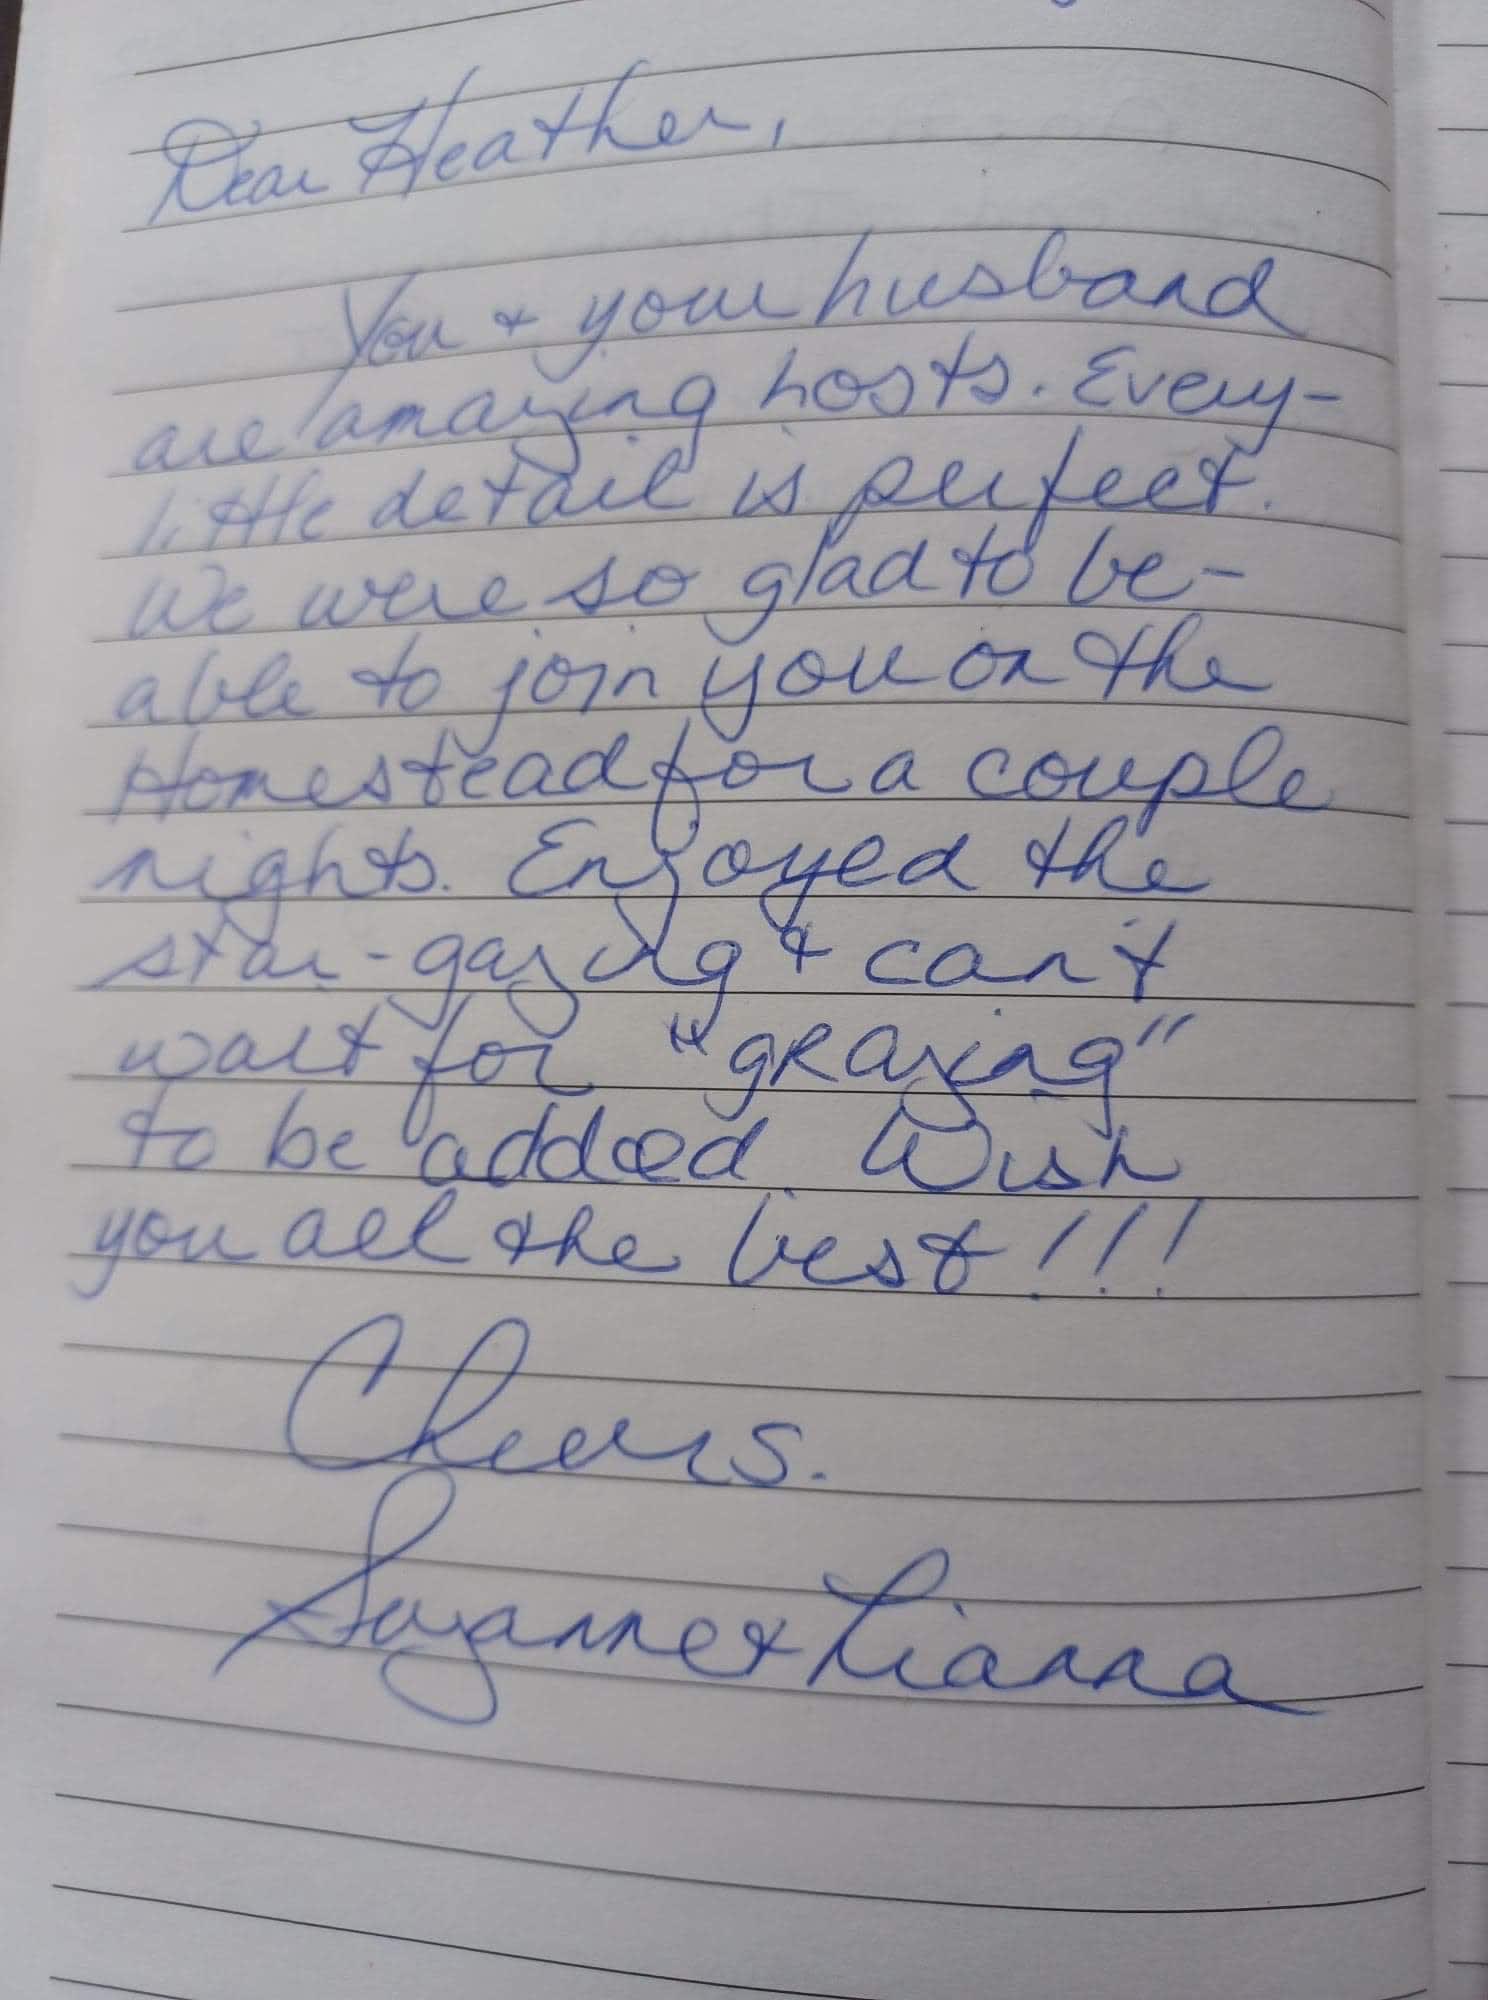 Dear Heather,
You + your husband
are amazing hosts. Every-
little detail is perfect.
We were so glad to be-
able to join you on the
Homestead for a couple
nights. Enjoyed the
star-gazing + can't
wait for "gRazing"
to be added. Wish
you all the best!!!
Cheers.
Suzanne + Lianna